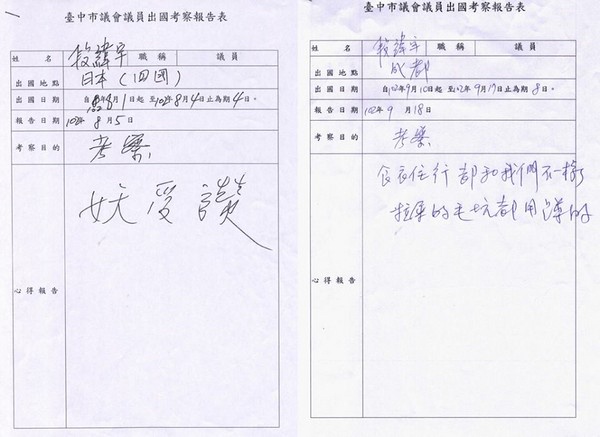 臺中市議會議員出國考察報告表
姓名 段緯宇 職稱 議員
出國地點 日本(四國)
出國日期 自年8月1日起至102年8月4日止為期4日。
報告日期 102年8月5日
考察目的 考察
心得報告 妖受讚
臺中市議會議員出國考察報告表
姓名 段緯宇 職稱 議員
出國地點 成都
出國日期 自102年9月10日起至102年9月17日止為期8日。
報告日期 102年9月18日
考察目的 考察
食衣住行都和我們不一樣
拉屎的毛坑都用蹲的
心得報告